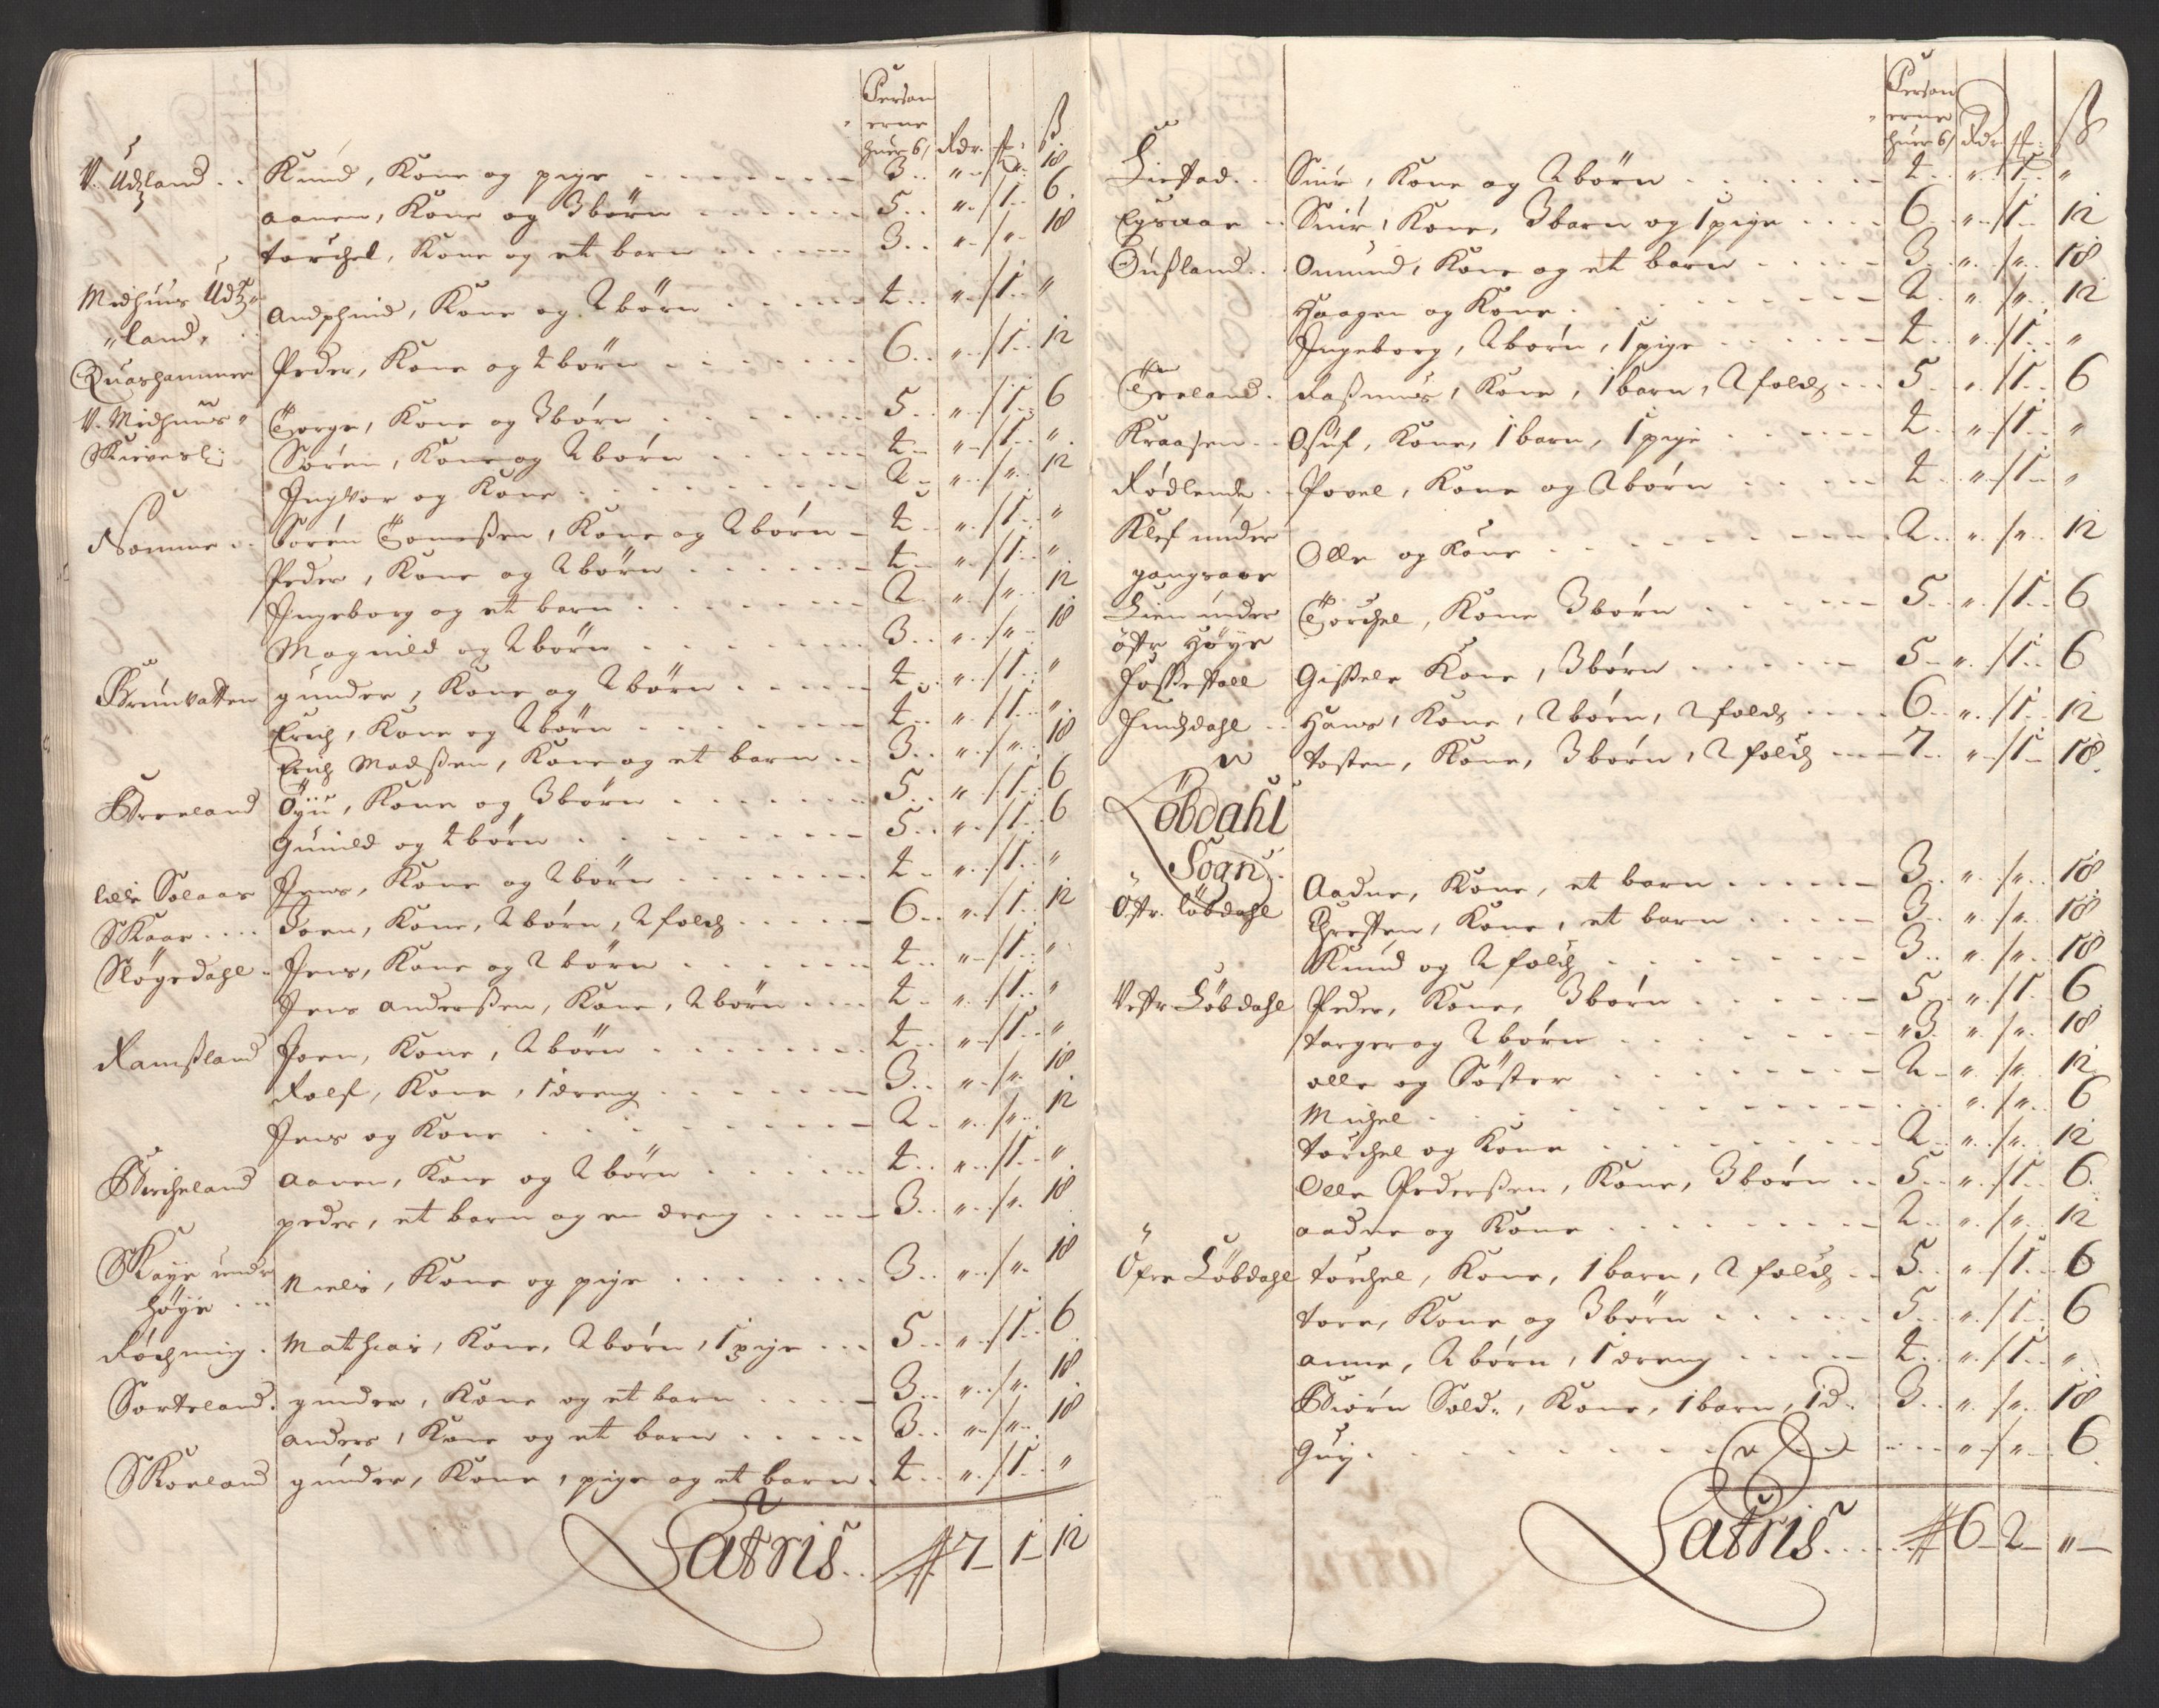 Person
erne
huer 6/ Rdr. ort ß
V. Udzland .. Knud, Kone og pige 3 .. " " 18
Aanen, Kone og 3 börn 5 .. " 1 .. 6
Torchel, Kone og et barn 3 .. " " 18
Midhuus Udtz"
"land,
Andphind, Kone og 2 börn 4 .. " 1 .. "
Quashammer Peder, Kone og 4 börn 6 .. " 1 .. 12
V. Midhuus" Börge, Kone og 3 börn 5 .. " 1 .. 6
Skieresli: Sören, Kone og 2 börn 4 .. " 1 .. "
Inghvor og Kone 2 .. " " 12
Romme .. Sören Tomeßen, Kone og 2 börn 4 .. " 1 .. "
Peder, Kone og 2 börn 4 .. " 1 .. "
Ingeborg og et barn 2 .. " " 12
Magnild og 2 börn 3 .. " " 18
Brunvatten gunder, Kone og 2 börn 4 .. " 1 .. "
Erich, Kone og 2 börn 4 .. " 1 .. "
Erich Madßen, Kone og et barn 3 .. " " 18
Breeland Öyu, Kone og 3 börn 5 .. " 1 .. 6
Gunild og 4 börn 5 .. " 1 .. 6
lille Solaas Jens, Kone og 2 börn 4 .. " 1 .. "
Skaar .... Joen, Kone, 2 börn, 2 folch 6 .. " 1 .. 12
Slögedahl .. Jens, Kone og 2 börn 4 .. " 1 .. "
Jens Anderßen, Kone, 2 börn 4 .. " 1 .. "
Ramßland Joen, Kone, 2 börn 4 .. " 1 .. "
Rolf, Kone, 1 dreng 3 .. " " 18
Jens og Kone 2 .. " " 12
Bircheland Aanen, Kone og 2 börn 4 .. " 1 .. "
peder, et barn og en dreng 3 .. " " 18
Skaye undr
höye ... Niels, Kone og pige 3 .. " " 18
Röchning . Mathias, Kone, 2 börn, 1 pige 5 .. " 1 .. 6
Sorteland. gunder, Kone og et barn 3 .. " " 18
Anders, Kone og et barn 3 .. " " 18
Skorland gunder, Kone, pige og et barn 4 .. " 1 .. "
Latris .. 7 1 12
Person
erne
huer 6/ Rdr ort ß
Liestad .. Siur, Kone og 2 börn 4 .. " 1 .. "
Egeaae .. Siur, Kone, 3 barn og 1 pige 6 .. " 1 .. 12
Önßland .. Omund, Kone og et barn 3 .. " " 18
Haagen og Kone 2 .. " " 12
Ingeborg, 2 börn, 1 pige 4 .. " 1 .. "
Töreland. Raßmus, Kone, 1 barn, 2 folch 5 .. " 1 .. 6
Kraagen .. Osuf, Kone, 1 barn, 1 pige 4 .. " 1 .. "
Rödlende . Povel, Kone og 2 börn 4 .. " 1 .. "
Klef under
gangsaae Olle og Kone 2 .. " " 12
Lien under
östr Höye Torchel, Kone 3 börn 5 .. " 1 .. 6
Joßestöll Gißele Kone, 3 börn 5 .. " 1 .. 6
Hudzdahl .. Hans, Kone, 2 börn, 2 folch 6 .. " 1 .. 12
Tosten, Kone, 3 börn, 2 folch 7 .. " 1 .. 18
Löbdahl
Sogn.
Östr. löbdahl Aadne, Kone, et barn 3 .. " " 18
Chresten, Kone, et barn 3 .. " " 18
Knud og 2 folch 3 .. " " 18
Vestr Löbdahl Peder, Kone, 3 börn 5 .. " 1 .. 6
Targer og 2 börn "3 .. " " 18
olle og Söster 2 .. " " 12
Michel " " 6
Torchel og Kone 2 .. " " 12
Olle Pederßen, Kone, 3 börn 5 .. " 1 .. 6
aadne og Kone 2 .. " " 12
Öfre Löbdahl Torchel, Kone, 1 barn, 2 folch 5 .. " 1 .. 6
Tore, Kone og 3 börn 5 .. " 1 .. 6
anne, 2 börn, 1 dreng 4 .. " 1 .. "
Biörn Sold:, Kone, 1 barn, 1 d. 3 .. " " 18
Guij " " 6
Latris ..... 6 2 "